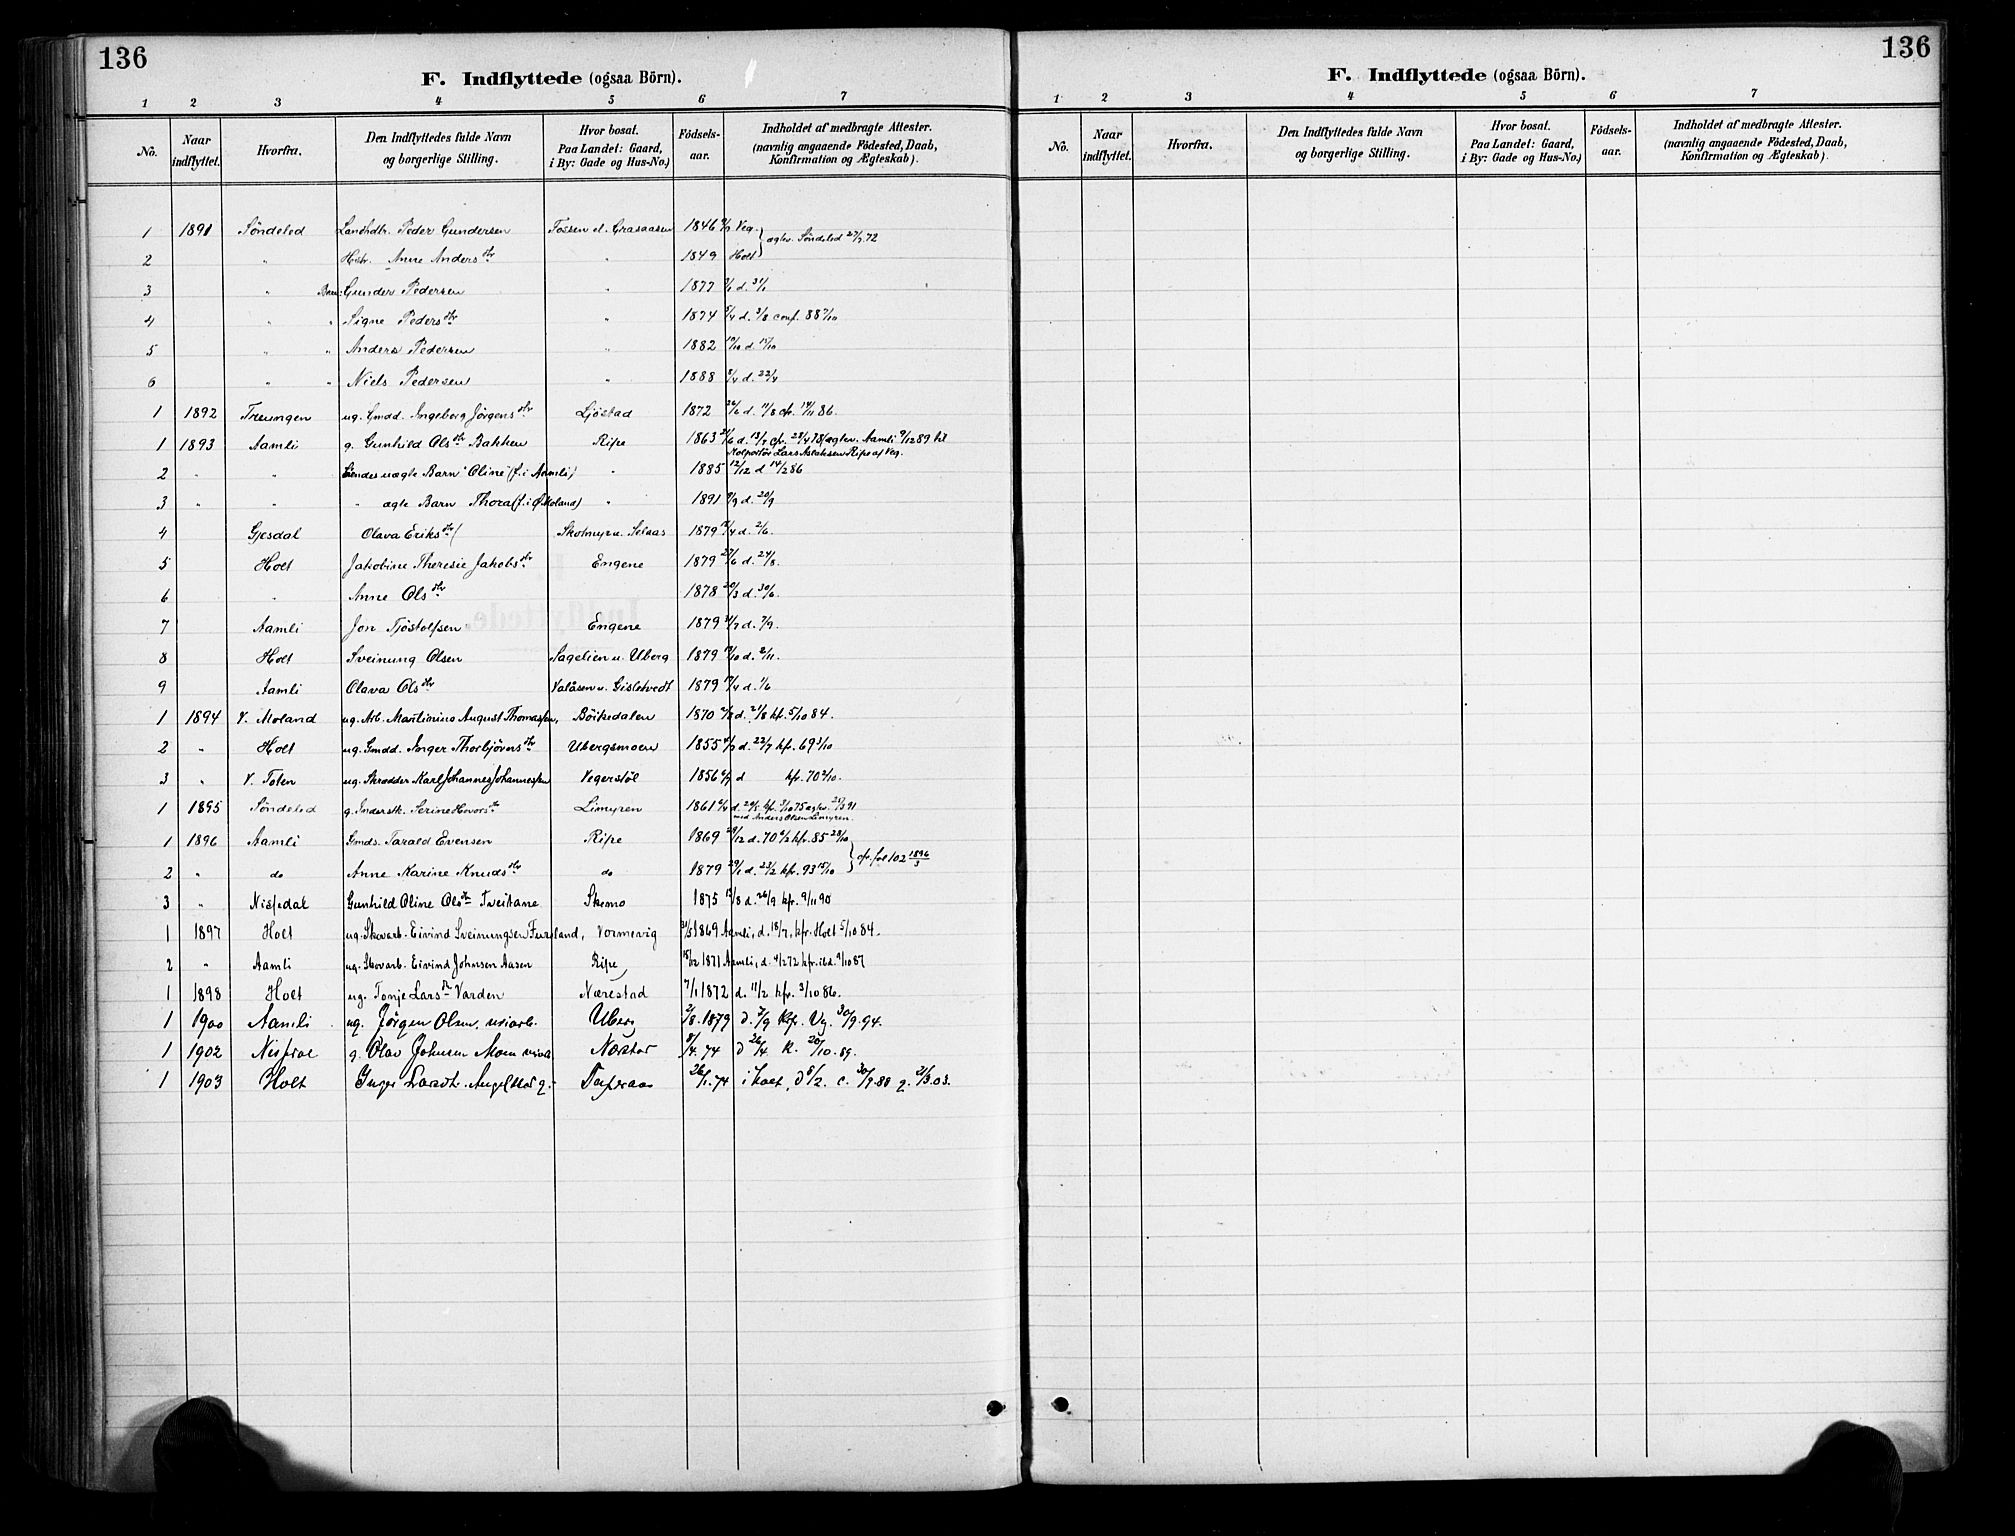 136
F. Indflyttede (ogsaa Börn).
1 2 3 4 5 6 7
No. Naar indflyttet. Hvorfra. Den Indflyttedes fulde Navn og borgerlige Stilling. Hvor bosat. Paa Landet: Gaard, i By: Gade og Hus-No.) Födsels-aar. Indholdet af medbragte Attester. (navnlig angaaende Födested, Daab, Konfirmation og Ægteskab).
1 1891 Söndeled Landhdl. Peder Gundersen Fossen 1846 Veg. ægtev. Söndeled 27/9 72
2 " Hstr. Anne Andersdtr " 1849 Holt
3 " Börn: Gunder Pedersen " 1877
4 " " Signe Pedersdtr " 1874 d. 3/8 conf. 88
5 " " Anders Pedersen " 1882
6 " " Niels Pedersen " 1888 d. 22/4
1 1892 Treungen ug. Gmdd. Ingeborg Jörgensdtr Ljöstad 1872 d. 11/8 cfr. 14/11 86.
1 1893 Aamli g. Gunhild Olsdtr Bakken Ripe 1863 d. 13/7 cfr. 29/4 78 ægtev. Aamli 9/12 89 til
Kolportör Lars Aslaksen Ripe af Veg.
2 " " Hendes uægte Barn "Oline" (f. i Aamli) " 1885 12/12 d 14/2 86
3 " " " ægte Barn Thora (f. i Ø. Moland) " 1891 d. 20/9
4 Gjesdal Olava Eriksdtr Skolmyr u. Selaas 1879 d. 2/6.
5 Holt Jakobine Theresie Jakobsdtr Engene 1879 27/6 d. 24/8.
6 " Anne Olsdtr 1878 20/3 d. 30/6.
7 Aamli Jon Tjöstolfsen Engene 1879 d. 7/9.
8 Holt Sveinung Olsen Sagelien u. Uberg 1879 d. 2/11.
9 Aamli Olava Olsdtr Valåsen u. Gisletvedt 1879 d. 1/6
1 1894 V. Moland ug. Arb. Martinino August Thomassen, Böiksdalen 1870 d. 21/8 kfr. 5/10 84.
2 " Holt ug. Gmdd. Inger Thorbjörnsdtr Ubergsmoen 1855 d. 22/7 kfr. 69 3/10
3 " V. Toten ug. Skrædder Karl Johannes Johannessen Vegerstöl 1856 d kfr. 70 2/10.
1 1895 Söndeled g. Inderstk. Serine Hovorsdtr Limyren 1861 d. 20/5 kfr. 3/10 75 ægtev. 91
med Anders Olsen Limyren.
1 1896 Aamli Gmds. Tarald Evensen Ripe 1869 d. 70 6/2 kfr. 85 25/10 cfr. fol 102 1896/3
2 " do Anne Karine Knudsdtr do 1879 29/1 d. 23/2 kfr. 93 15/10
3 " Nisfedal Gunhild Oline Olsdtr Tveitane Skemo 1875 d. 26/9 kfr. 9/11 90
1 1897 Holt ug. Skovarb. Eivind Sveinungsen Fursland, Vormevig 1869 Aamli, d. 18/7, kfr. Holt 5/10 84.
2 " Aamli ug. Skovarb. Eivind Johnsen Aasen Ripe 15/12 1871 Aamli, d. 4/2 72 kfr. ibd. 9/10 87
1 1898 Holt ug. Tonje Larsdtr Varden Nærestad 7/1 1872 d. 11/2 kfr. 3/10 86.
1 1900 Aamli ug. Jörgen Olsen, Uberg 2/8. 1879 d. 7/9 Kfr. Vg. 30/9. 94.
1 1902 g. Olav Johnsen Moen Nærstad 8/4. 74 d 26/4 K. 20/10. 89.
1 1903 Holt Inger 26/1. 74 i Holt, d 8/2. c. 30/9. 88 g. 21/3. 03.
136
F. Indflyttede (ogsaa Börn).
1 2 3 4 5 6 7
No. Naar indflyttet. Hvorfra. Den Indflyttedes fulde Navn og borgerlige Stilling. Hvor bosat. Paa Landet: Gaard, i By: Gade og Hus-No.) Födsels-aar. Indholdet af medbragte Attester. (navnlig angaaende Födested, Daab, Konfirmation og Ægteskab).